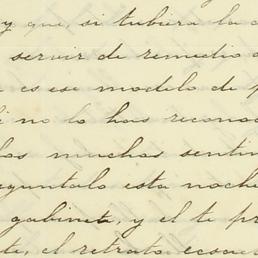 y que, si tubiera la
servir de remedio
es ese modelo de
no lo has recono
las muchas senti
eguntalo esta noche
gabinete, y el te pr
te, el retrato